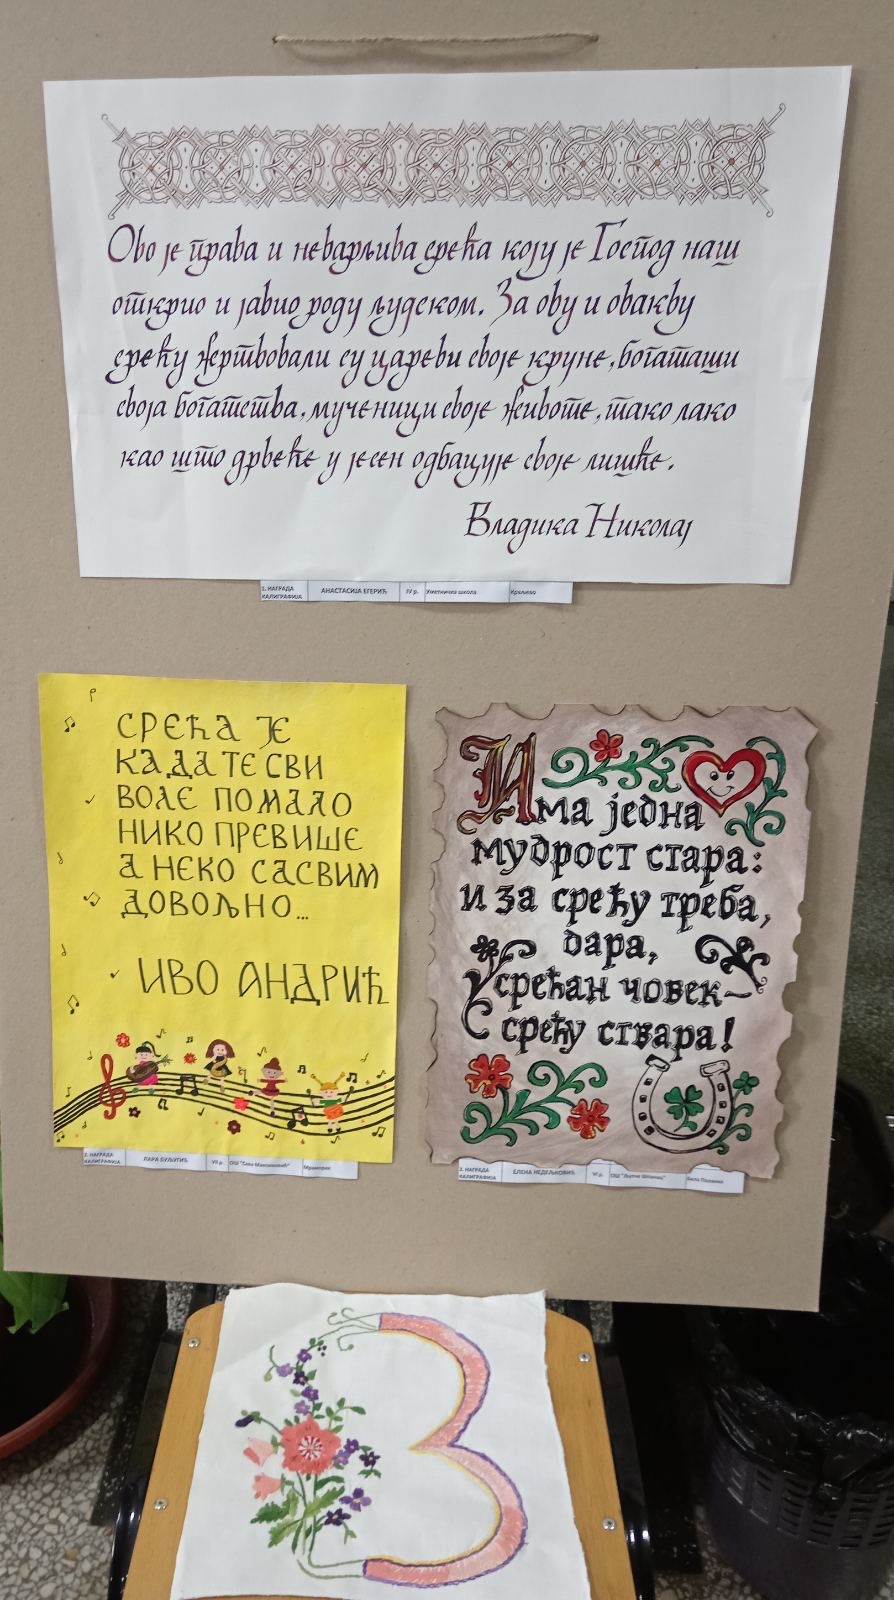 Ово је права и неварљива срећа коју је Господ наш
открио и јавио роду људском. За ову и овакву
срећу жртвовали су цареви своје круне, богаташи
своја богатства, мученици своје животе, тако лако
као што дрвеће у јесен одбацује своје лишће.
Владика Николај
1. НАГРАДА КАЛИГРАФИЈА АНАСТАСИЈА ЕГЕРИЋ IV р. Уметничка школа Краљево
СРЕЋА ЈЕ
КАДА ТЕ СВИ
ВОЛЕ ПОМАЛО
НИКО ПРЕВИШЕ
А НЕКО САСВИМ
ДОВОЉНО...
ИВО АНДРИЋ
2. НАГРАДА КАЛИГРАФИЈА ЛАРА БУЉУГИЋ VII р. ОШ "Сава Максимовић" Мраморак
Има једна
мудрост стара:
и за срећу треба,
дара,
срећан човек–
срећу ствара!
КАЛИГРАФИЈА ЕЛЕНА НЕДЕЉКОВИЋ VI р. ОШ Бела Паланка
З